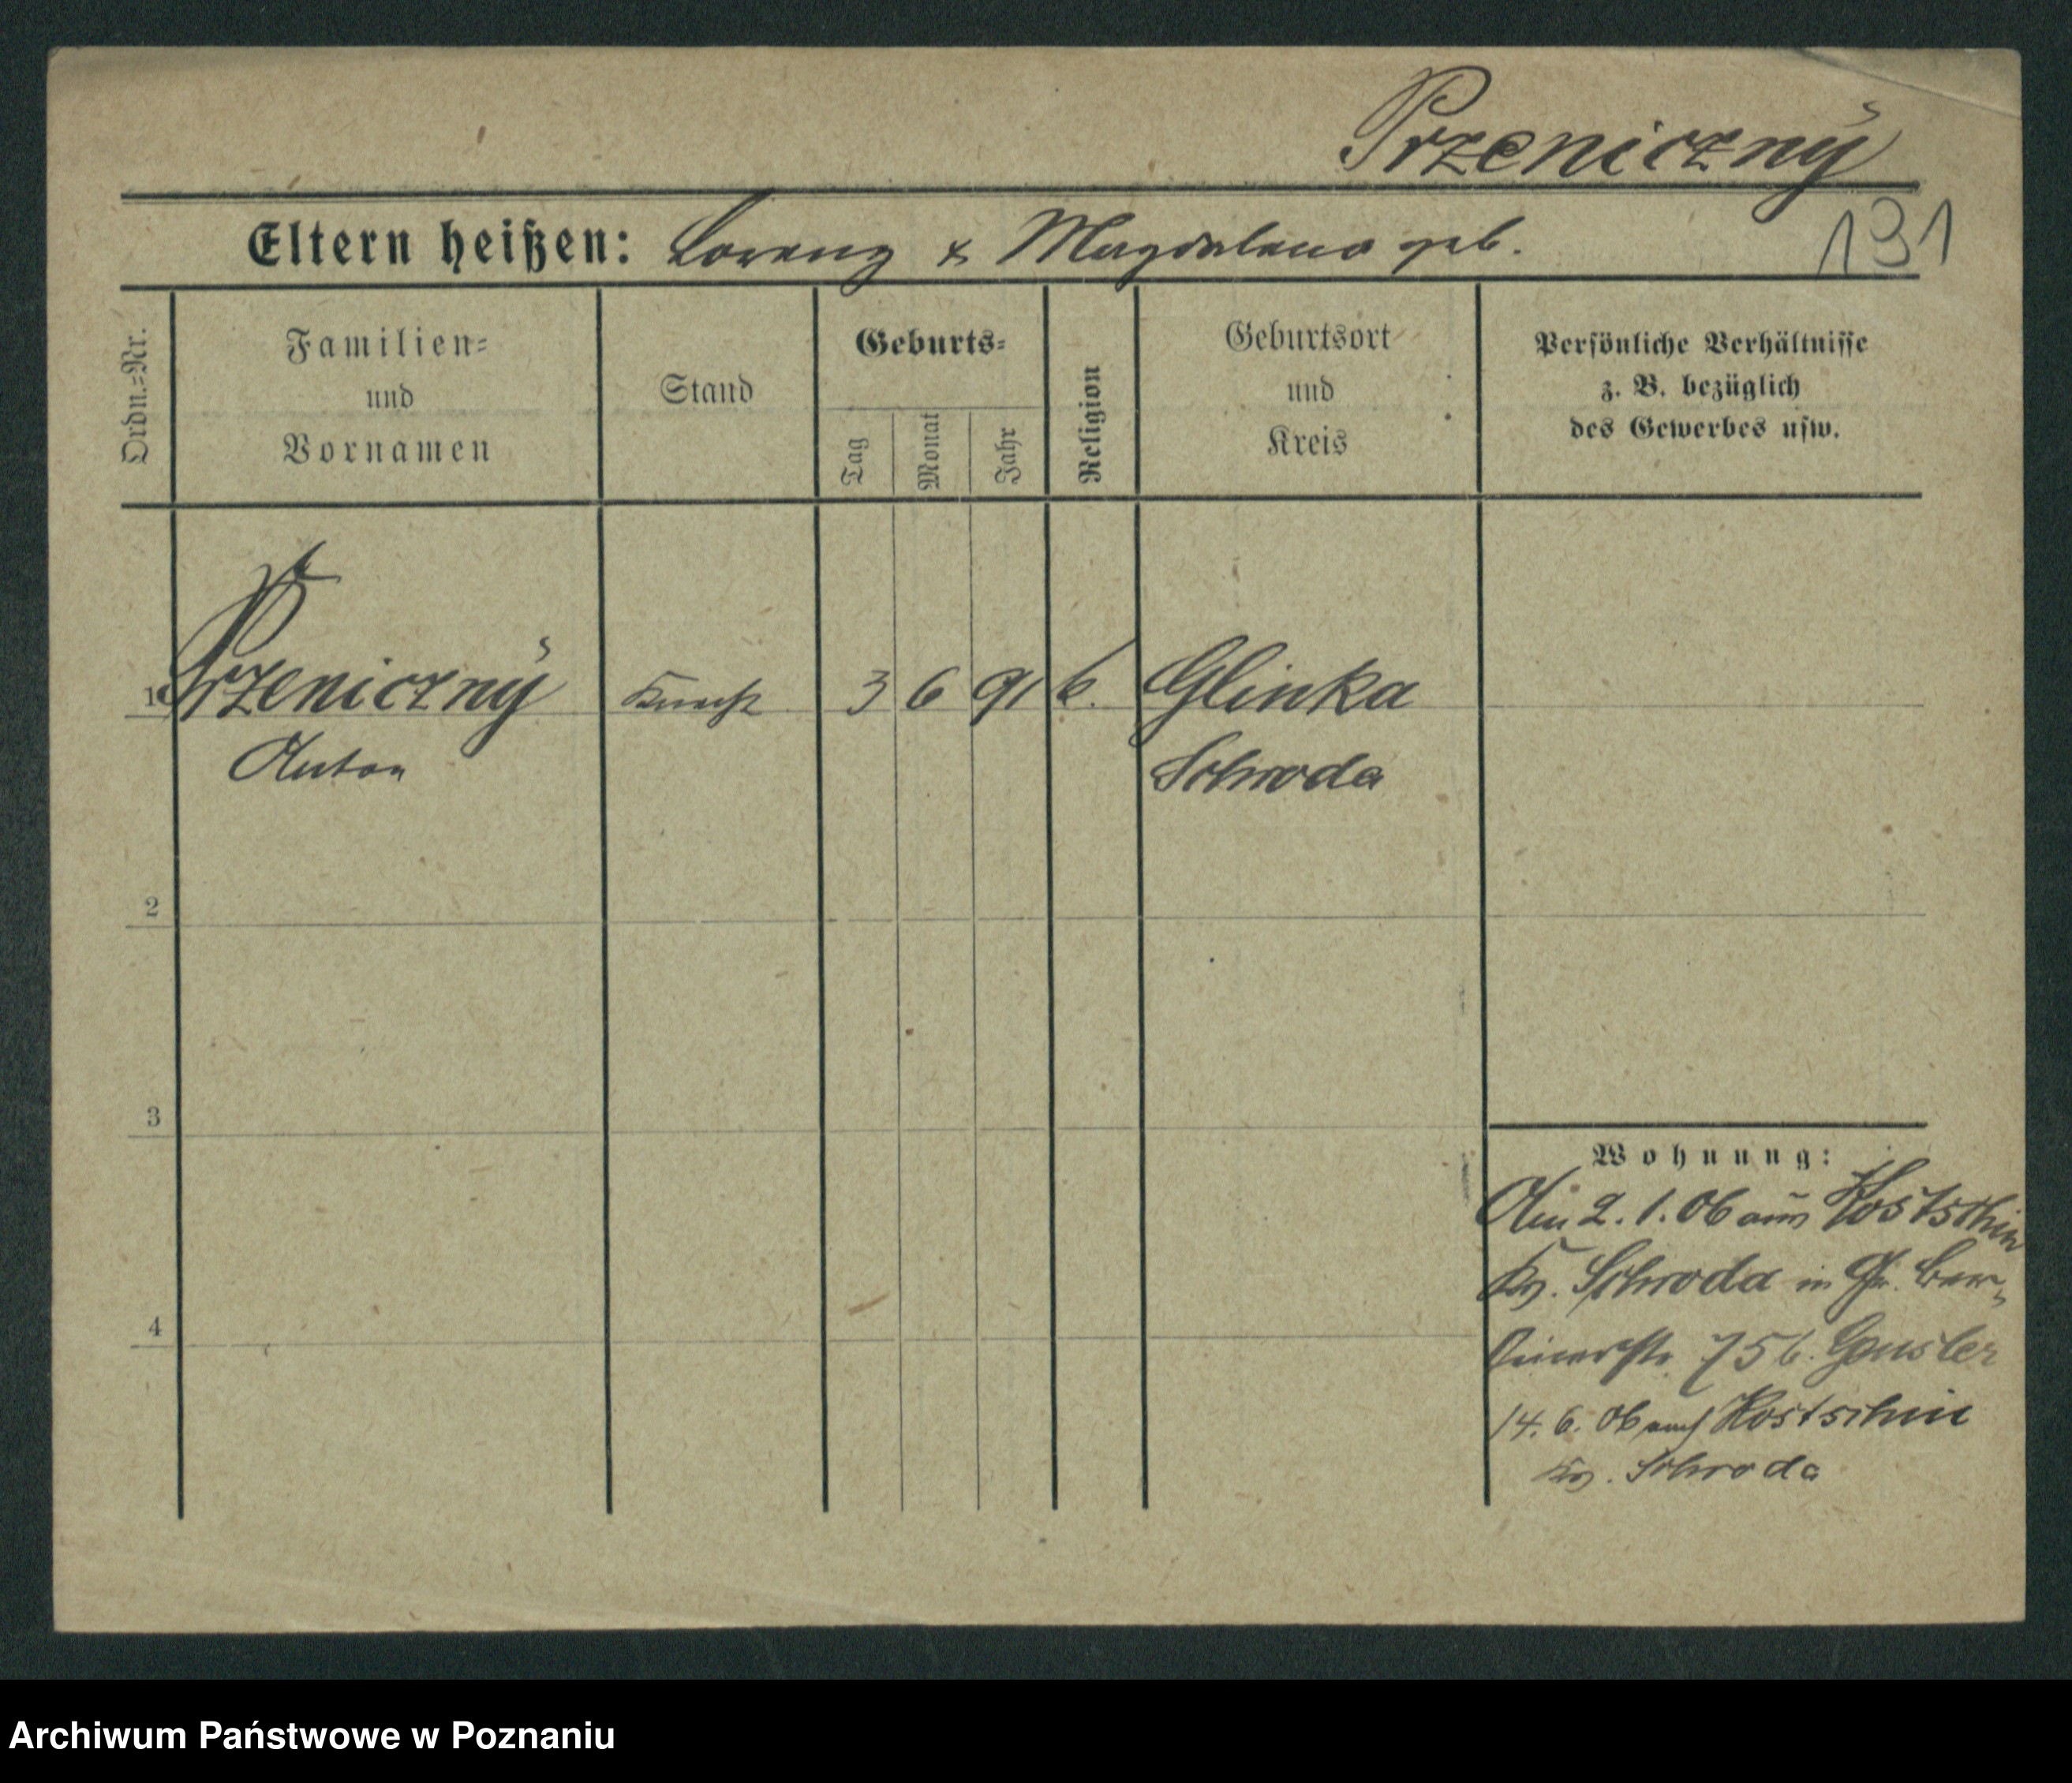 Przeniczny
Eltern heißen: Lorenz & Magdalena geb.
131
Ordn.-Nr.
Familien-
und
Vornamen
Stand
Geburts-
Tag
Monat
Jahr
Religion
Geburtsort
und
Kreis
Persönliche Verhältnisse
z. B. bezüglich
des Gewerbes usw.
1 Przeniczny Knecht 3 6 91 k. Glinka
Anton Schroda
2
3
4
Wohnung:
Am 2. 1. 06 aus Kostschin
Kr. Schroda in Gr. Ber-
75 b.
14. 6. 06 nach Kostschin
Kr. Schroda
Archiwum Państwowe w Poznaniu